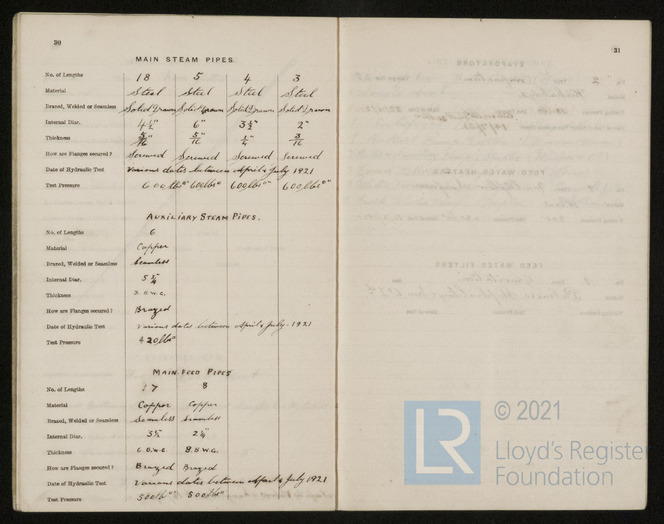 30
MAIN STEAM PIPES.
No. of Lengths 18 5 4 3
Material Steel Steel Steel Steel
Brazed, Welded or Seamless Solid Drawn Solid Drawn Solid Drawn Solid Drawn
Internal Diar. 4½" 6" 3½" 2"
Thickness 5/16" 5/16 1/4" 3/16
How are Flanges secured? Screwed Screwed Screwed Screwed
Date of Hydraulic Test Various dates between April & July 1921
Test Pressure 600 lbs 600 lbs 600 lbs 600 lbs
AUXILIARY STEAM PIPES.
No. of Lengths 6
Material Copper
Brazed, Welded or Seamless Seamless
Internal Diar.
Thickness S.W.G.
How are Flanges secured? Brazed
Date of Hydraulic Test Various dates between April & July. 1921
Test Pressure 420 lbs
MAIN FEED PIPES
No. of Lengths 17 8
Material Copper Copper
Brazed, Welded or Seamless Seamless Seamless
Internal Diar. 3½ 2¼"
Thickness 6.S.W.G. 8.S.W.G.
How are Flanges secured? Brazed Brazed
Date of Hydraulic Test Various dates between April & July 1921
Test Pressure 500 lbs 500 lbs
31
LR
© 2021
Lloyd's Register
Foundation